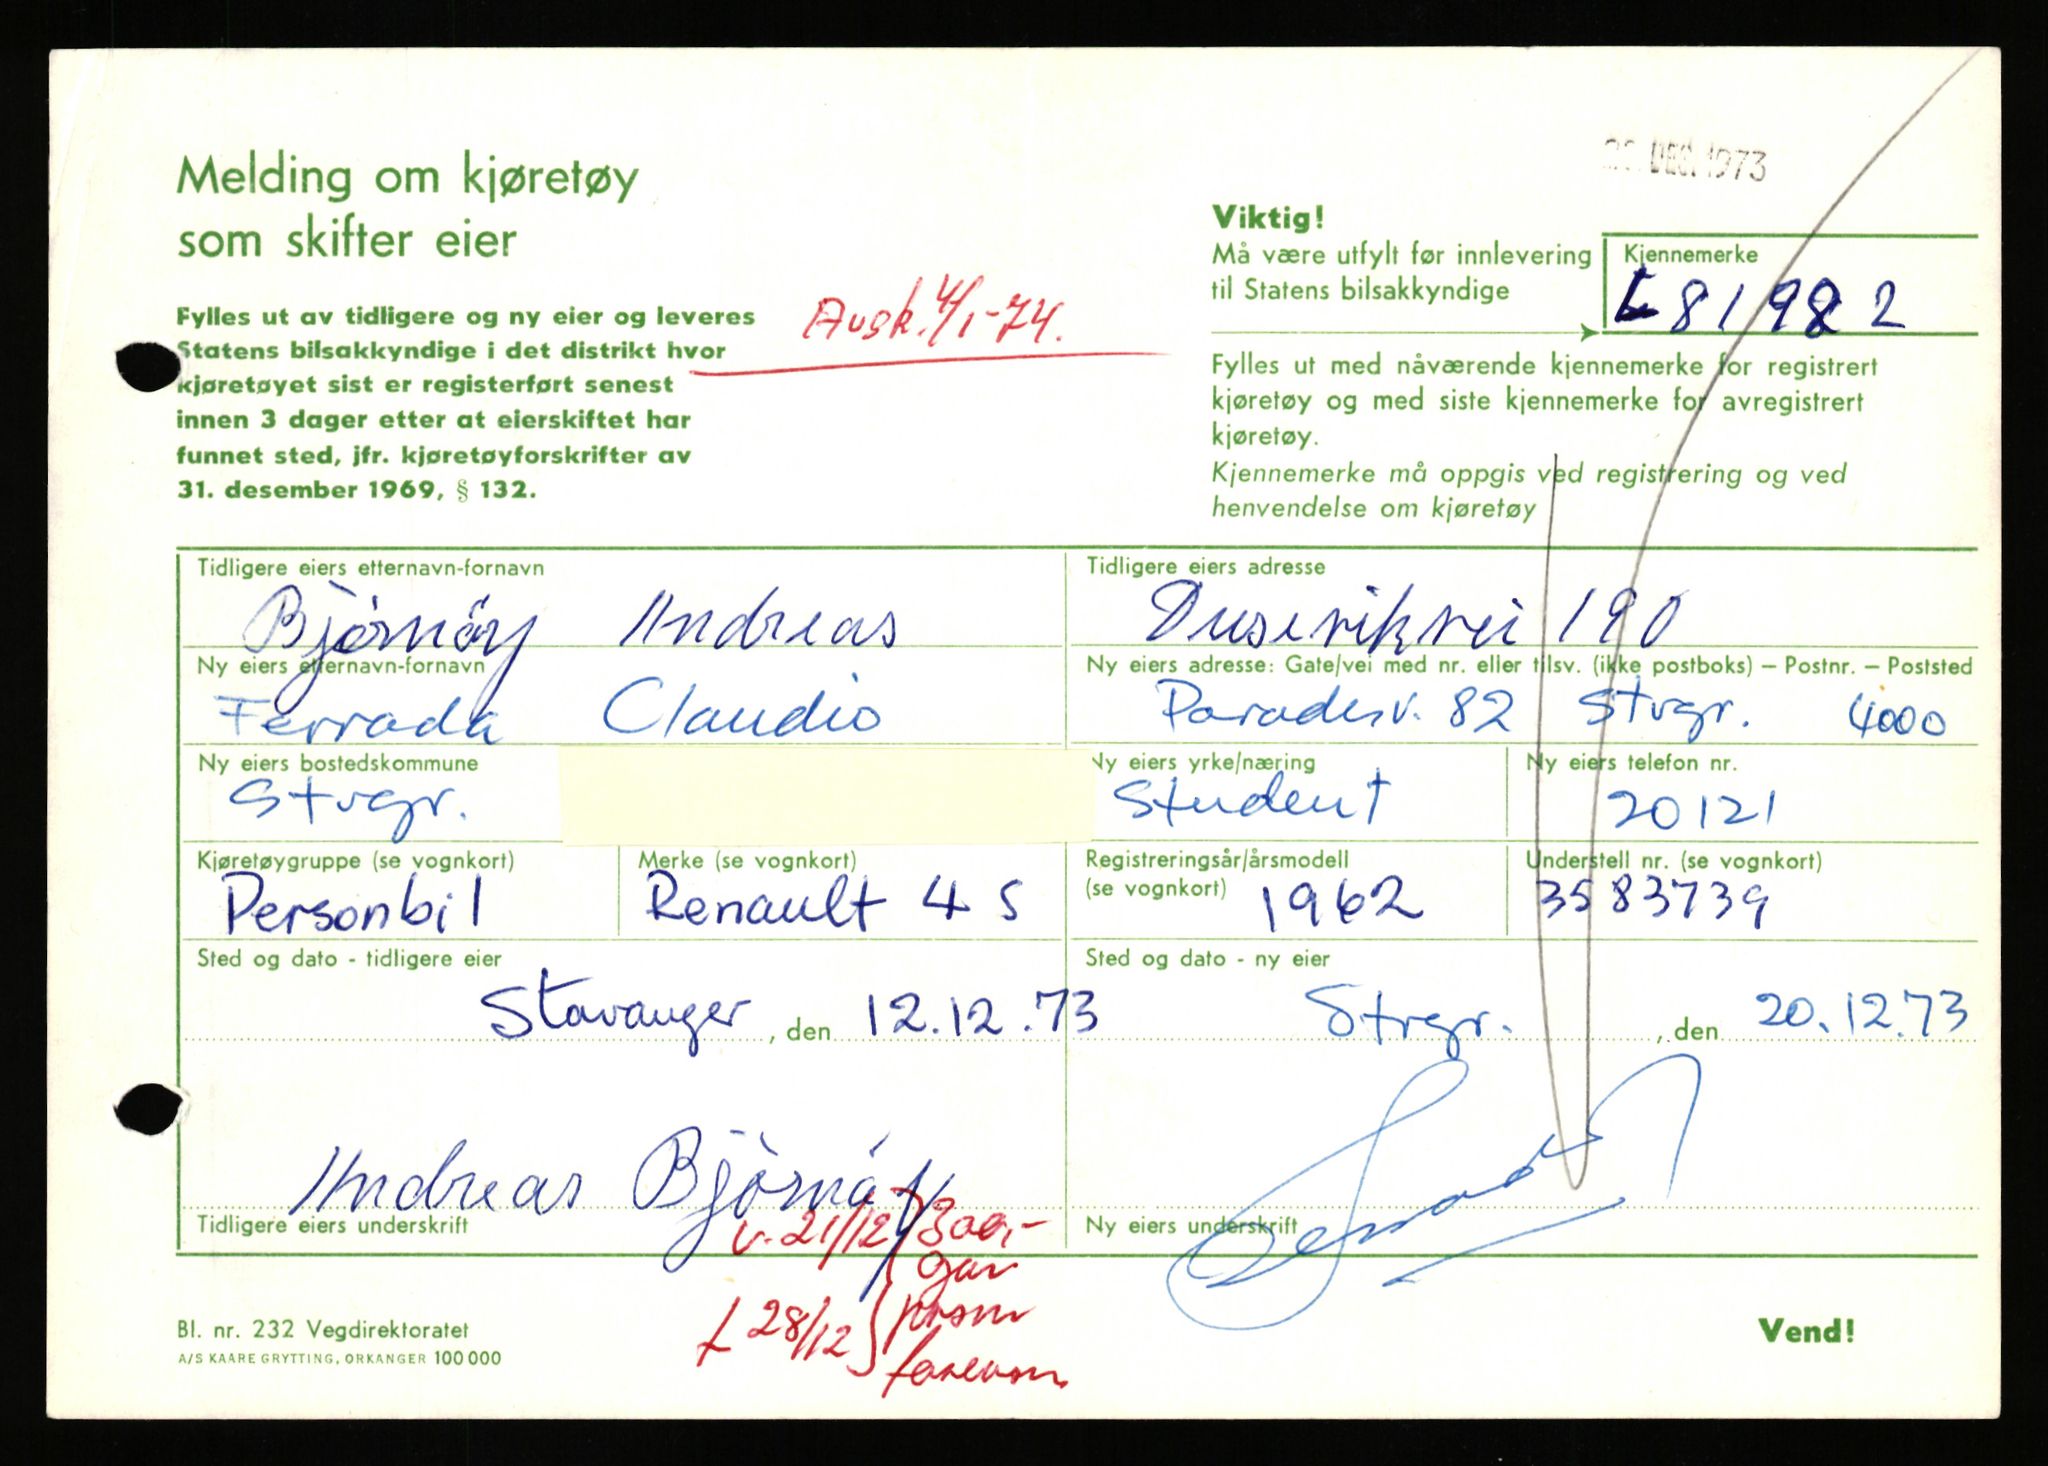 DEC. 1973
Melding om kjøretøy
som skifter eier
Fylles ut av tidligere og ny eier og leveres
Statens bilsakkyndige i det distrikt hvor
kjøretøyet sist er registerført senest
innen 3 dager etter at eierskiftet har
funnet sted, jfr. kjøretøyforskrifter av
31. desember 1969, § 132.
Avsk. 4/1-74.
Viktig!
Må være utfylt før innlevering
til Statens bilsakkyndige
Kjennemerke
L 81982
Fylles ut med nåværende kjennemerke for registrert
kjøretøy og med siste kjennemerke for avregistrert
kjøretøy.
Kjennemerke må oppgis ved registrering og ved
henvendelse om kjøretøy
Tidligere eiers etternavn-fornavn
Bjørnøy Andreas
Tidligere eiers adresse
Dusevikvei 190
Ny eiers etternavn-fornavn
Ferrada Claudio
Ny eiers adresse: Gate/vei med nr. eller tilsv. (ikke postboks) – Postnr. – Poststed
Paradisv. 82 Stvgr. 4000
Ny eiers bostedskommune
Stvgr.
Ny eiers yrke/næring
Student
Ny eiers telefon nr.
20121
Kjøretøygruppe (se vognkort)
Personbil
Merke (se vognkort)
Renault 4 S
Registreringsår/årsmodell
(se vognkort) 1962
Understell nr. (se vognkort)
3583739
Sted og dato - tidligere eier
Stavanger, den 12.12.73
Sted og dato - ny eier
Stvgr., den 20.12.73
Andreas Bjørnøy
Tidligere eiers underskrift
Ny eiers underskrift
v. 21/12 300,-
28/12
Bl. nr. 232 Vegdirektoratet
A/S KAARE GRYTTING, ORKANGER 100 000
Vend!